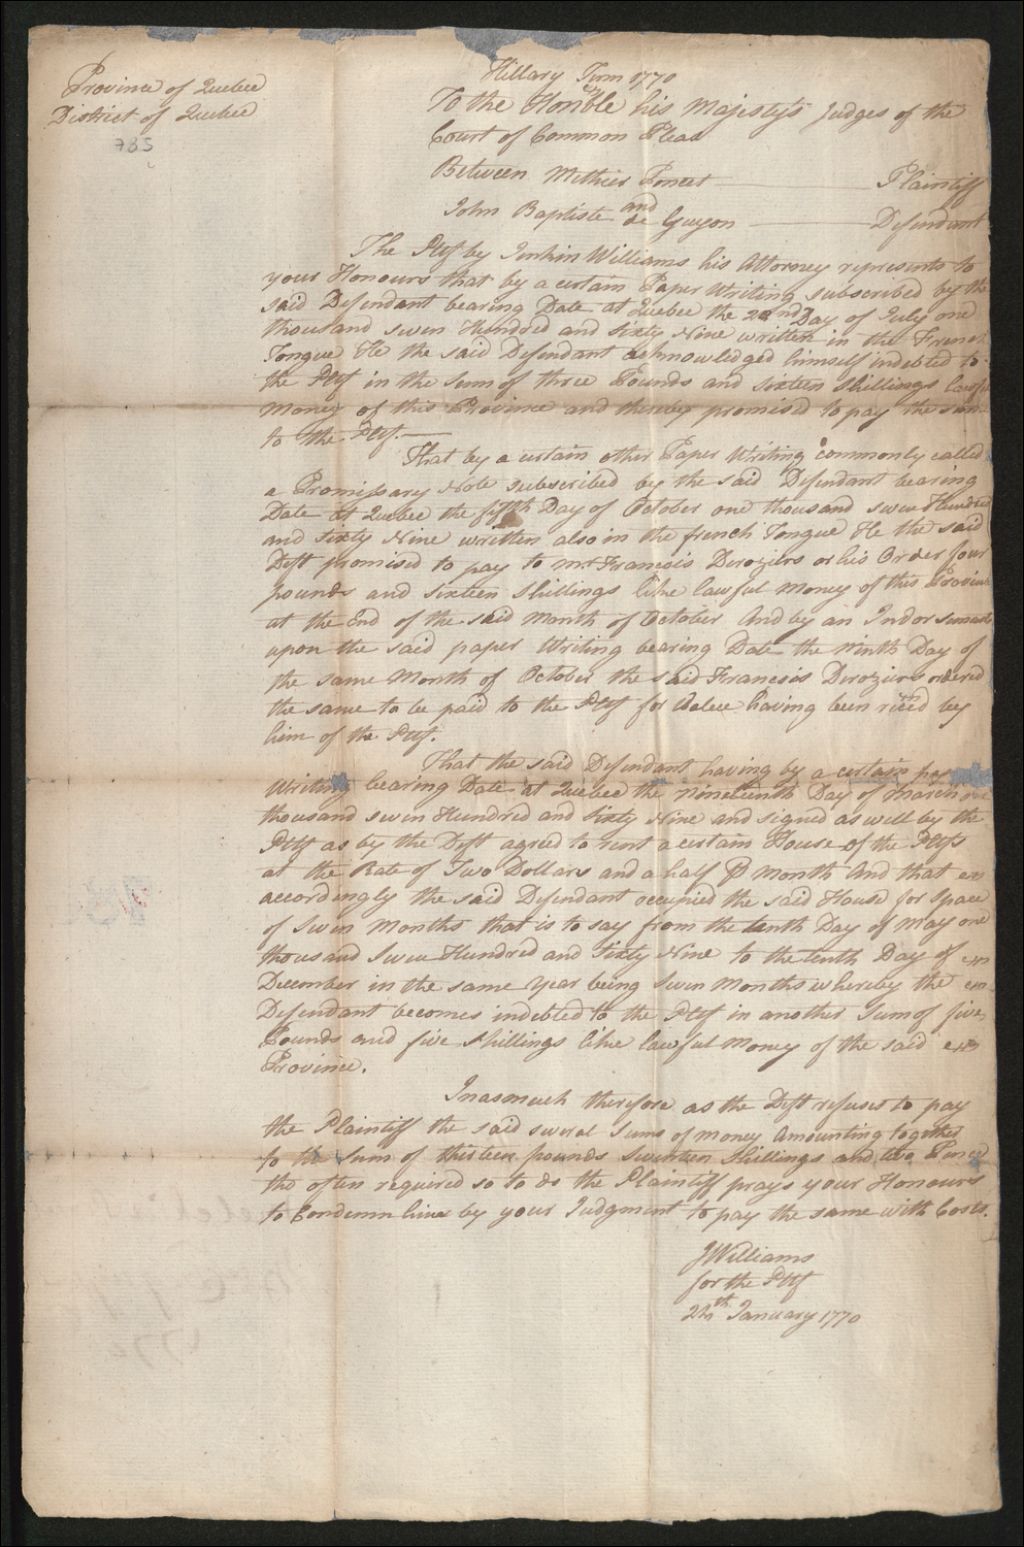 Province of Quebec
District of Quebec
785
Hillary Term 1770
To the Honble his Majesty's Judges of the
Court of Common Pleas
Between Methier Poncet Plaintiff
and
John Baptiste de Guyon Defendant
The Pltf by Jenkin Williams his Attorney represents to
your Honours that by a certain Paper Writing subscribed by the
said Defendant bearing Date at Quebec the 22nd Day of July one
thousand seven Hundred and Sixty Nine written in the French
Tongue He the said Defendant acknowledged himself indebted to
the Pltf in the Sum of three Pounds and sixteen Shillings lawful
Money of this Province and thereby promised to pay the same
to the Pltf.
That by a certain other Paper Writing commonly called
a Promissary Note subscribed by the said Defendant bearing
Date at Quebec the fifth Day of October one thousand seven Hundred
and Sixty Nine written also in the french Tongue He the said
Deft promised to pay to Mr Francois Deroziers or his Order four
pounds and sixteen Shillings like lawful Money of this Province
at the End of the said Month of October And by an Indorsement
upon the said paper Writing bearing Date the Ninth Day of
the same Month of October the said Francois Deroziers ordered
the same to be paid to the Pltf for Value having been recd by
him of the Pltf.
That the said Defendant having by a certain
Writing bearing Date at Quebec the Nineteenth Day of March one
thousand seven Hundred and Sixty Nine and signed as well by the
Pltf as by the Deft agreed to rent a certain House of the Pltfs
at the Rate of Two Dollars and a half P Month And that
accordingly the said Defendant occupied the said House for Space
of Seven Months that is to say from the tenth Day of May one
thousand Seven Hundred and Sixty Nine to the tenth Day of
December in the same Year being Seven Months whereby the
Defendant becomes indebted to the Pltf in another Sum of five
Pounds and five Shillings like lawful Money of the said
Province.
Inasmuch therefore as the Deft refuses to pay
the Plaintiff the said several Sums of Money Amounting together
to the Sum of thirteen pounds Seventeen Shillings and two Pence
tho often required so to do the Plaintiff prays your Honours
to Condemn him by your Judgment to pay the same with Costs.
JWilliams
for the Pltf
24th January 1770